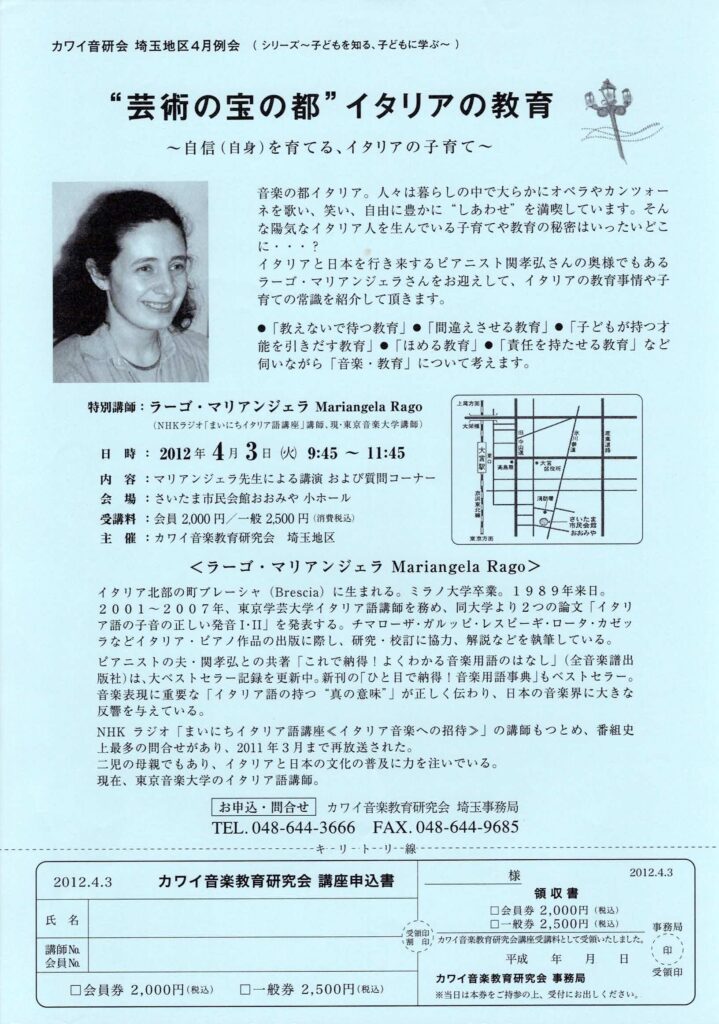 カワイ音研会 埼玉地区4月例会 （ シリーズ～子どもを知る、子どもに学ぶ～ ）
“芸術の宝の都”イタリアの教育
～自信（自身）を育てる、イタリアの子育て～
音楽の都イタリア。人々は暮らしの中で大らかにオペラやカンツォー
ネを歌い、笑い、自由に豊かに“しあわせ”を満喫しています。そん
な陽気なイタリア人を生んでいる子育てや教育の秘密はいったいどこ
に・・・？
イタリアと日本を行き来するピアニスト関孝弘さんの奥様でもある
ラーゴ・マリアンジェラさんをお迎えして、イタリアの教育事情や子
育ての常識を紹介して頂きます。
●「教えないで待つ教育」●「間違えさせる教育」●「子どもが持つ才
能を引きだす教育」●「ほめる教育」●「責任を持たせる教育」など
伺いながら「音楽・教育」について考えます。
特別講師：ラーゴ・マリアンジェラ Mariangela Rago
（NHKラジオ「まいにちイタリア語講座」講師、現・東京音楽大学講師）
日 時：2012年 4月 3日 (火) 9:45 ～ 11:45
内 容：マリアンジェラ先生による講演 および質問コーナー
会 場：さいたま市民会館おおみや 小ホール
受講料：会員 2,000円／一般 2,500円（消費税込）
主 催：カワイ音楽教育研究会 埼玉地区
上尾方面
大栄橋
大宮駅
東口
旧中山道
高島屋
大宮区役所
氷川参道
産業道路
京浜東北線
消防署
さいたま
市民会館
おおみや
東京方面
＜ラーゴ・マリアンジェラ Mariangela Rago＞
イタリア北部の町ブレーシャ（Brescia）に生まれる。ミラノ大学卒業。１９８９年来日。
２００１～２００７年、東京学芸大学イタリア語講師を務め、同大学より２つの論文「イタリ
ア語の子音の正しい発音Ⅰ・Ⅱ」を発表する。チマローザ・ガルッピ・レスピーギ・ロータ・カゼッ
ラなどイタリア・ピアノ作品の出版に際し、研究・校訂に協力、解説などを執筆している。
ピアニストの夫・関孝弘との共著「これで納得！よくわかる音楽用語のはなし」（全音楽譜出
版社）は、大ベストセラー記録を更新中。新刊の「ひと目で納得！音楽用語事典」もベストセラー。
音楽表現に重要な「イタリア語の持つ“真の意味”が正しく伝わり、日本の音楽界に大きな
反響を与えている。
NHK ラジオ「まいにちイタリア語講座≪イタリア音楽への招待≫」の講師もつとめ、番組史
上最多の問合せがあり、2011年３月まで再放送された。
二児の母親でもあり、イタリアと日本の文化の普及に力を注いでいる。
現在、東京音楽大学のイタリア語講師。
お申込・問合せ カワイ音楽教育研究会 埼玉事務局
TEL. 048-644-3666 FAX. 048-644-9685
キ リ ト リ 線
2012.4.3 カワイ音楽教育研究会 講座申込書
氏 名
講師No.
会員No.
□会員券 2,000円（税込） □一般券 2,500円（税込）
受領印
割 印
様 2012.4.3
領 収 書
□会員券 2,000円（税込）
□一般券 2,500円（税込）
カワイ音楽教育研究会講座受講料として受領いたしました。
平成 年 月 日
カワイ音楽教育研究会 事務局
※当日は本券をご持参の上、受付にお出しください。
事務局
印
受領印